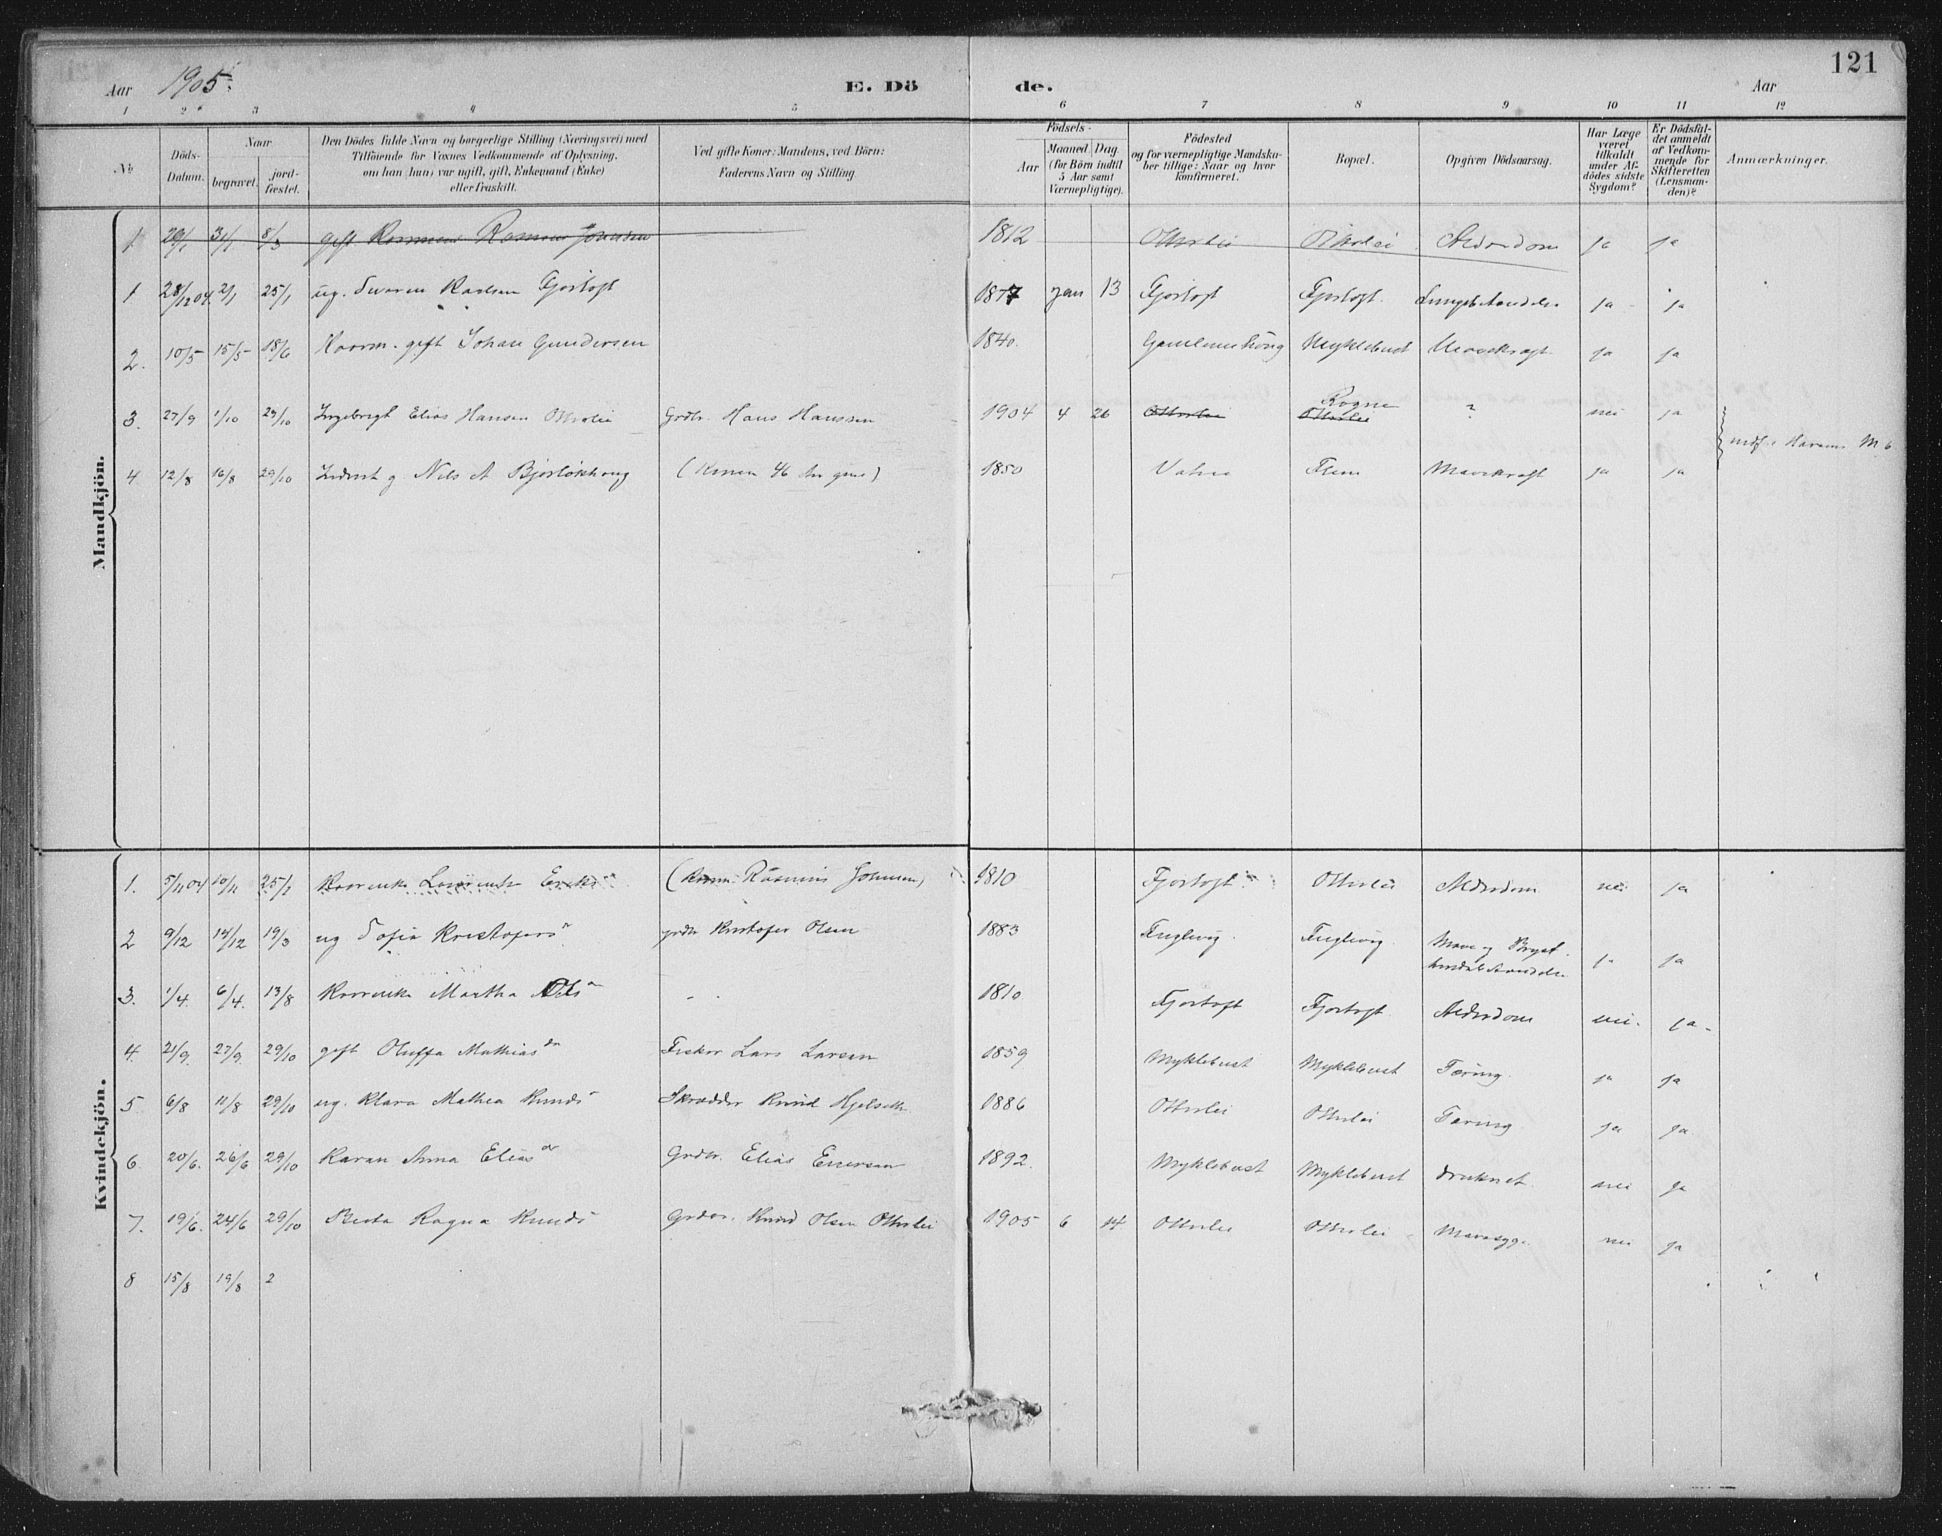 121
Aar 1905. E. Dö de. Aar
1 2 3 4 5 6 7 8 9 10 11 12
No. Döds-Datum. Naar begravet. jord-fæstet. Den Dödes fulde Navn og borgerlige Stilling (Næringsvei) med Tilföiende for Voxnes Vedkommende af Oplysning, om han (hun) var ugift, gift, Enkemand (Enke) eller fraskilt. Ved gifte Koner: Mandens, ved Börn: Faderens Navn og Stilling. Födsels- Aar Maaned Dag (for Börn indtil 5 Aar samt Værnepligtige). Födested og for værnepligtige Mandskaber tillige: Naar og hvor konfirmeret. Bopæl. Opgiven Dödsaarsag. Har Læge været tilkaldt under Afdödes sidste Sygdom? Er Dödsfaldet anmeldt af Vedkommende for Skifteretten (Lensmanden)? Anmærkninger.
Mandkjön.
1 29/1 31/1 8/3 gift Rasmus Johnsen 1812 Otterlei Otterlei Alderdom ja ja
1 28/12 04 2/1 25/1 ug. Karlsen Fjortoft 1877 Jan 13 Fjortoft Fjortoft. Lungebetændelse ja ja
2. 10/5 15/5 18/6 gift Johan Gundersen 1840. Myklebust Mavekræft ja ja
3. 27/9 1/10 29/10 Ingebrigt Elias Hansen Otterlei Grdbr. Hans Hanssen 1904 4 26 Otterlei Rogne Otterlei ? nei ja indf. i Harams M 6
4 12/8 16/8 29/10 Inderst g. Nils A Bjørlokhaug (Konen 46 Aar gml) 1850 Vatne Flem Mavekræft ja ja
Kvindekjön.
1. 5/11 04 10/11 25/1 (Rasmus Johnsen) 1810 Fjortoft Otterlei Alderdom nei ja
2 9/12 14/12 19/3 ug Sofie Kristofers grdbr Kristofer Olsen 1883 Fuglevig. Fuglevig. Mave og Bryst ja ja
3. 1/4. 6/4. 13/8 Martha Ols - . 1810 Fjortoft Fjortoft Alderdom nei. ja.
4. 21/9. 27/9. 29/10 gift Oluffa Mathiasdr Fisker Lars Larsen 1859 Myklebust Myklebust Tæring. ja ja
5. 6/8 11/8 29/10 ug. Klara Mathea Knuds Skrædder Knud Hjelseth 1886 Otterlei Otterlei Tæring ja ja.
6. 20/6. 26/6 29/10 Karen Anna Eliasdr Grdbr. Elias Enersen 1892. Myklebust Myklebust druknet. nei ja
7. 19/6. 24/6 29/10 Berta Ragna Knuds Grdbr. Knud Olsen Otterlei 1905 6 14 Otterlei Otterlei Mavesyge nei ja
8 15/8 19/8 2